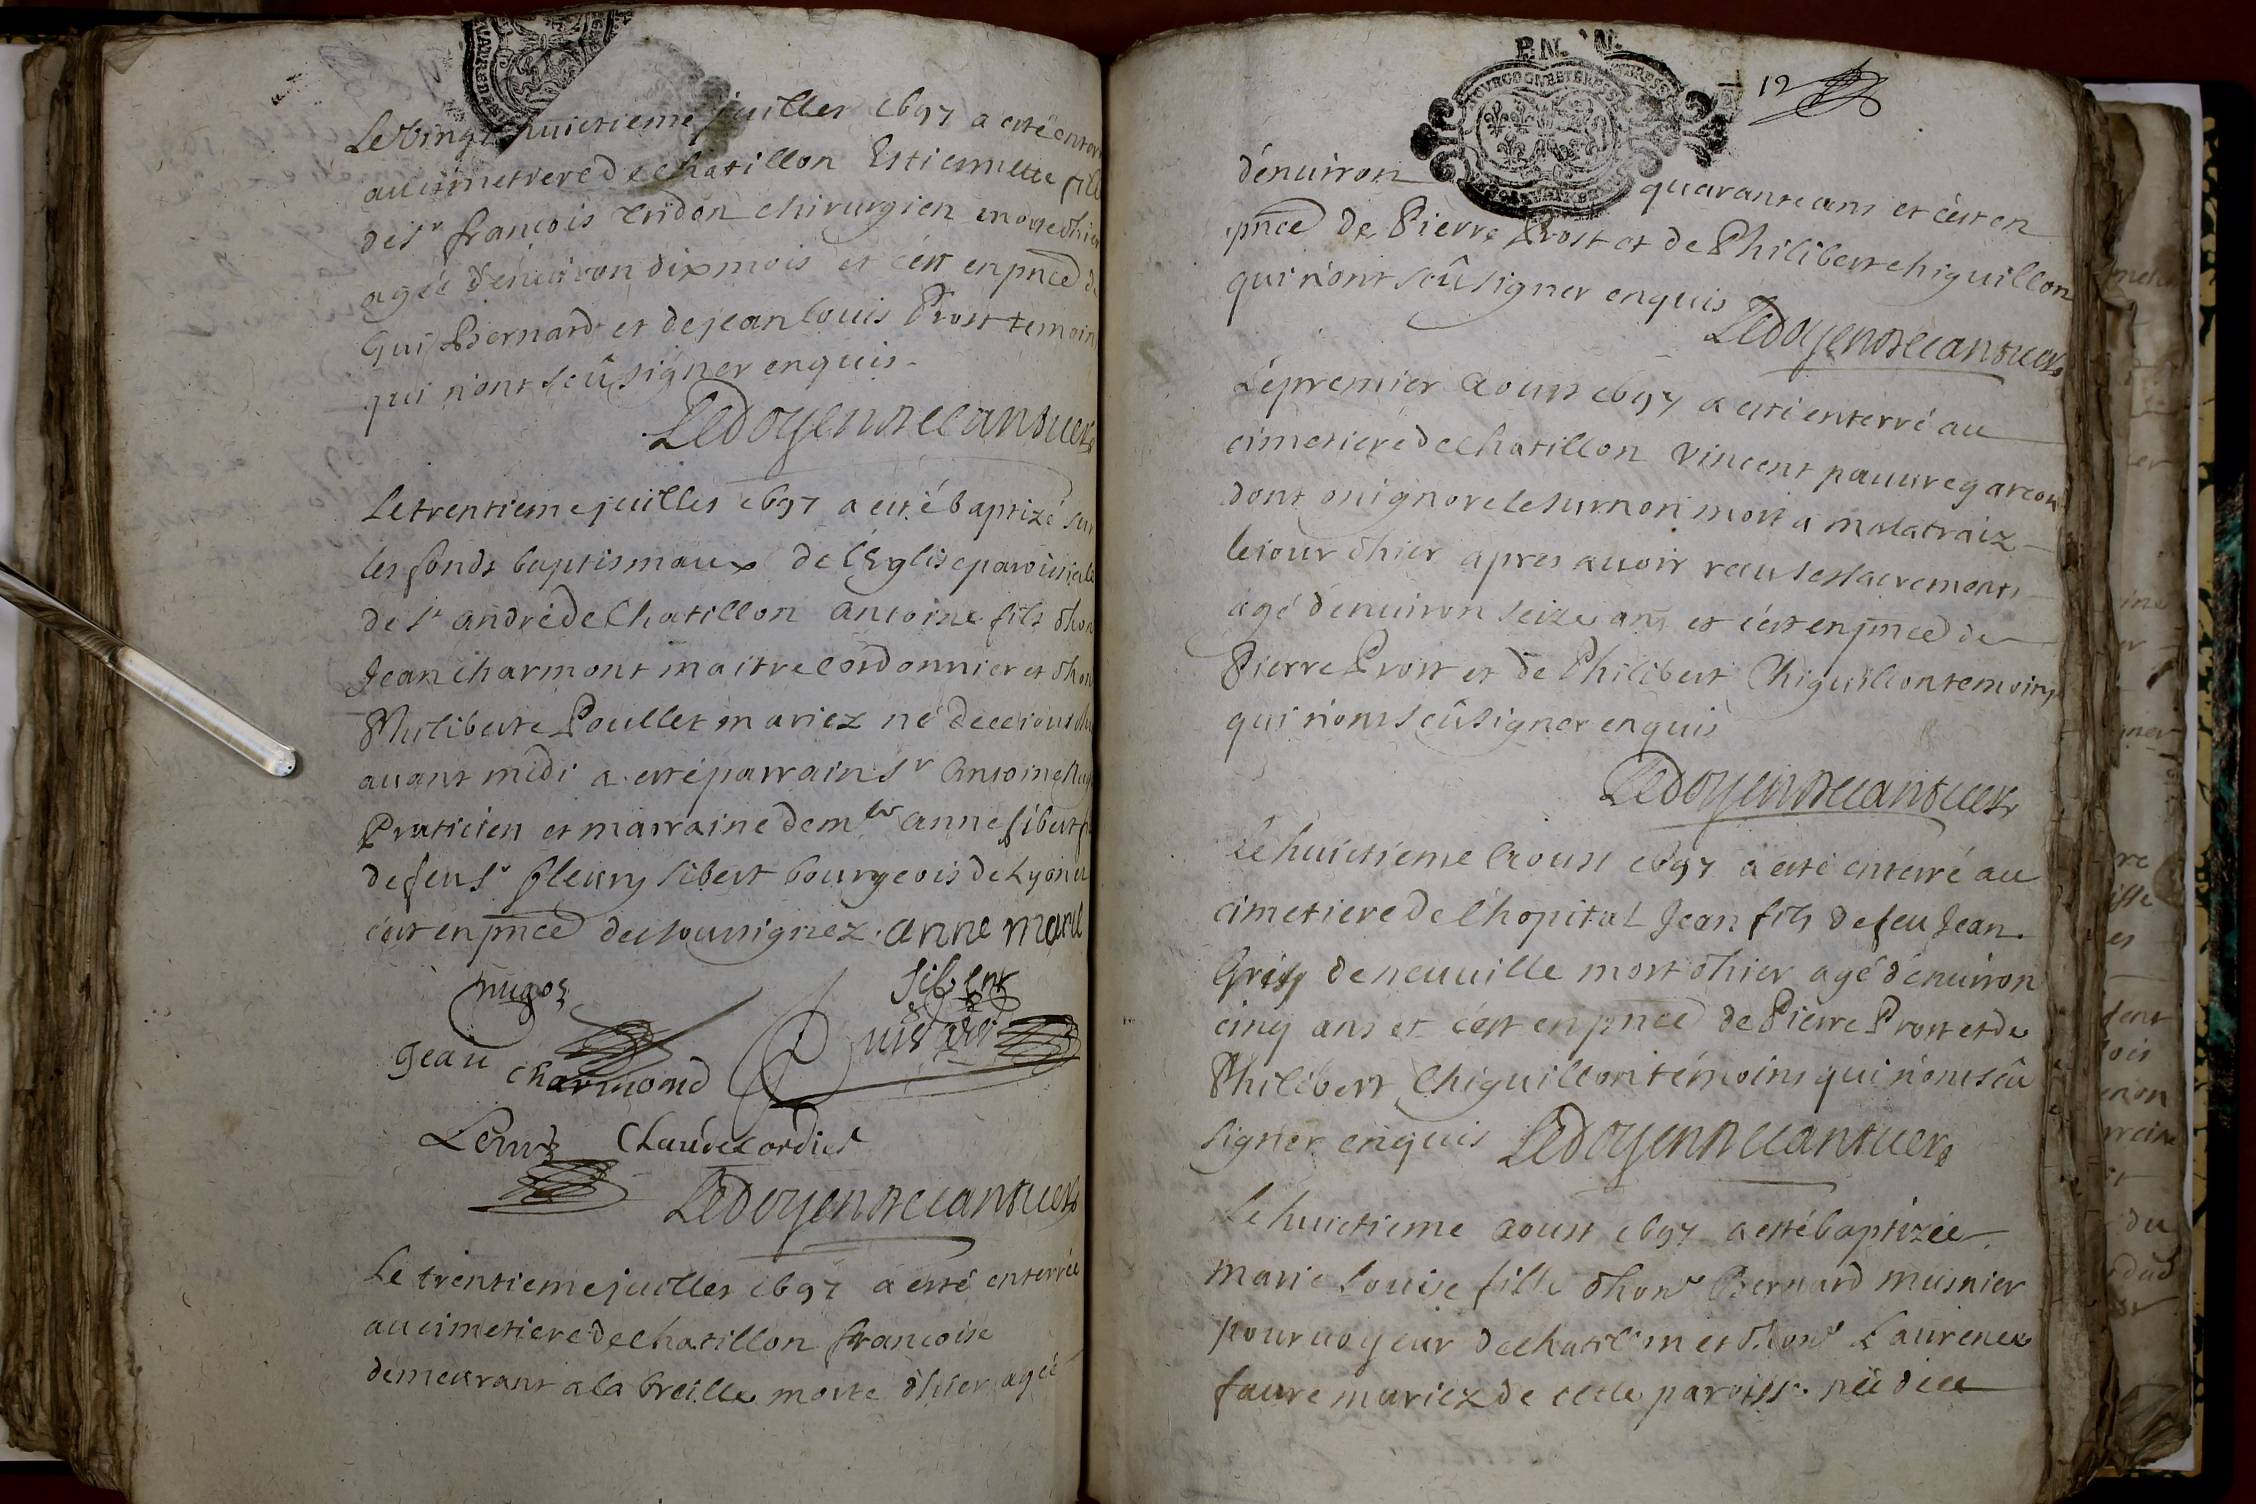 Le vingt huictieme juillet 1697 a esté enter
au cimetiere de chatillon Estiennette fill
de Sr françois Tridon chirurgien morte d'hier
agée d'enuiron dix mois et c'est en pnce de
Guy Bernard et de jean louis Prost temoin
qui n'ont sçû signer enquis.
Ledoyen
Le trentieme juillet 1697 a esté baptizé sur
les fonds baptismaux de l'Eglise paroissiale
de St andré de Chatillon antoine fils d'hon
Jean charmont maitre Cordonnier et d'hon
Philiberte Poullet mariez né de ce jourd'hu
auant midi a esté parrain Sr Antoine
Praticien et marraine demlle anne sibert
de feu Sr fleury sibert bourgeois de Lyon
c'est en pnce des soussignez. anne marie
nugoz sibert
Jean charmond
Claude Cordier
Ledoyen
Le trentieme juillet 1697 a esté enterrée
au cimetiere de chatillon françoise
demeurant a la breille morte d'hier agée
BN.
12
d'enuiron quarante ans et c'est en
pnce de Pierre Prost et de Philibert chiguillon
qui n'ont sçû signer enquis
Ledoyen
Le premier aoust 1697 a esté enterré au
cimetiere de chatillon vincent pauure garcon
dont on ignore le surnom mort a malatraiz
le jour d'hier apres auoir receu ses sacrements
agé d'enuiron seize ans et c'est en pnce de
Pierre Prost et de Philibert Chiguillon temoins
qui n'ont sçû signer enquis
Ledoyen
Le huictieme Aoust 1697 a esté enterré au
cimetiere de l'hopital Jean fils de feu Jean
de neuuille mort d'hier agé d'enuiron
cinq ans et c'est en pnce de Pierre Prost et de
Philibert Chiguillon témoins qui n'ont sçû
signer enquis Ledoyen
Le huictieme aoust 1697 a esté baptizée
marie louise fille d'honr Bernard musnier
pouruoyeur de chatillon et d'honr Laurence
faure mariez de cette paroisse née dice